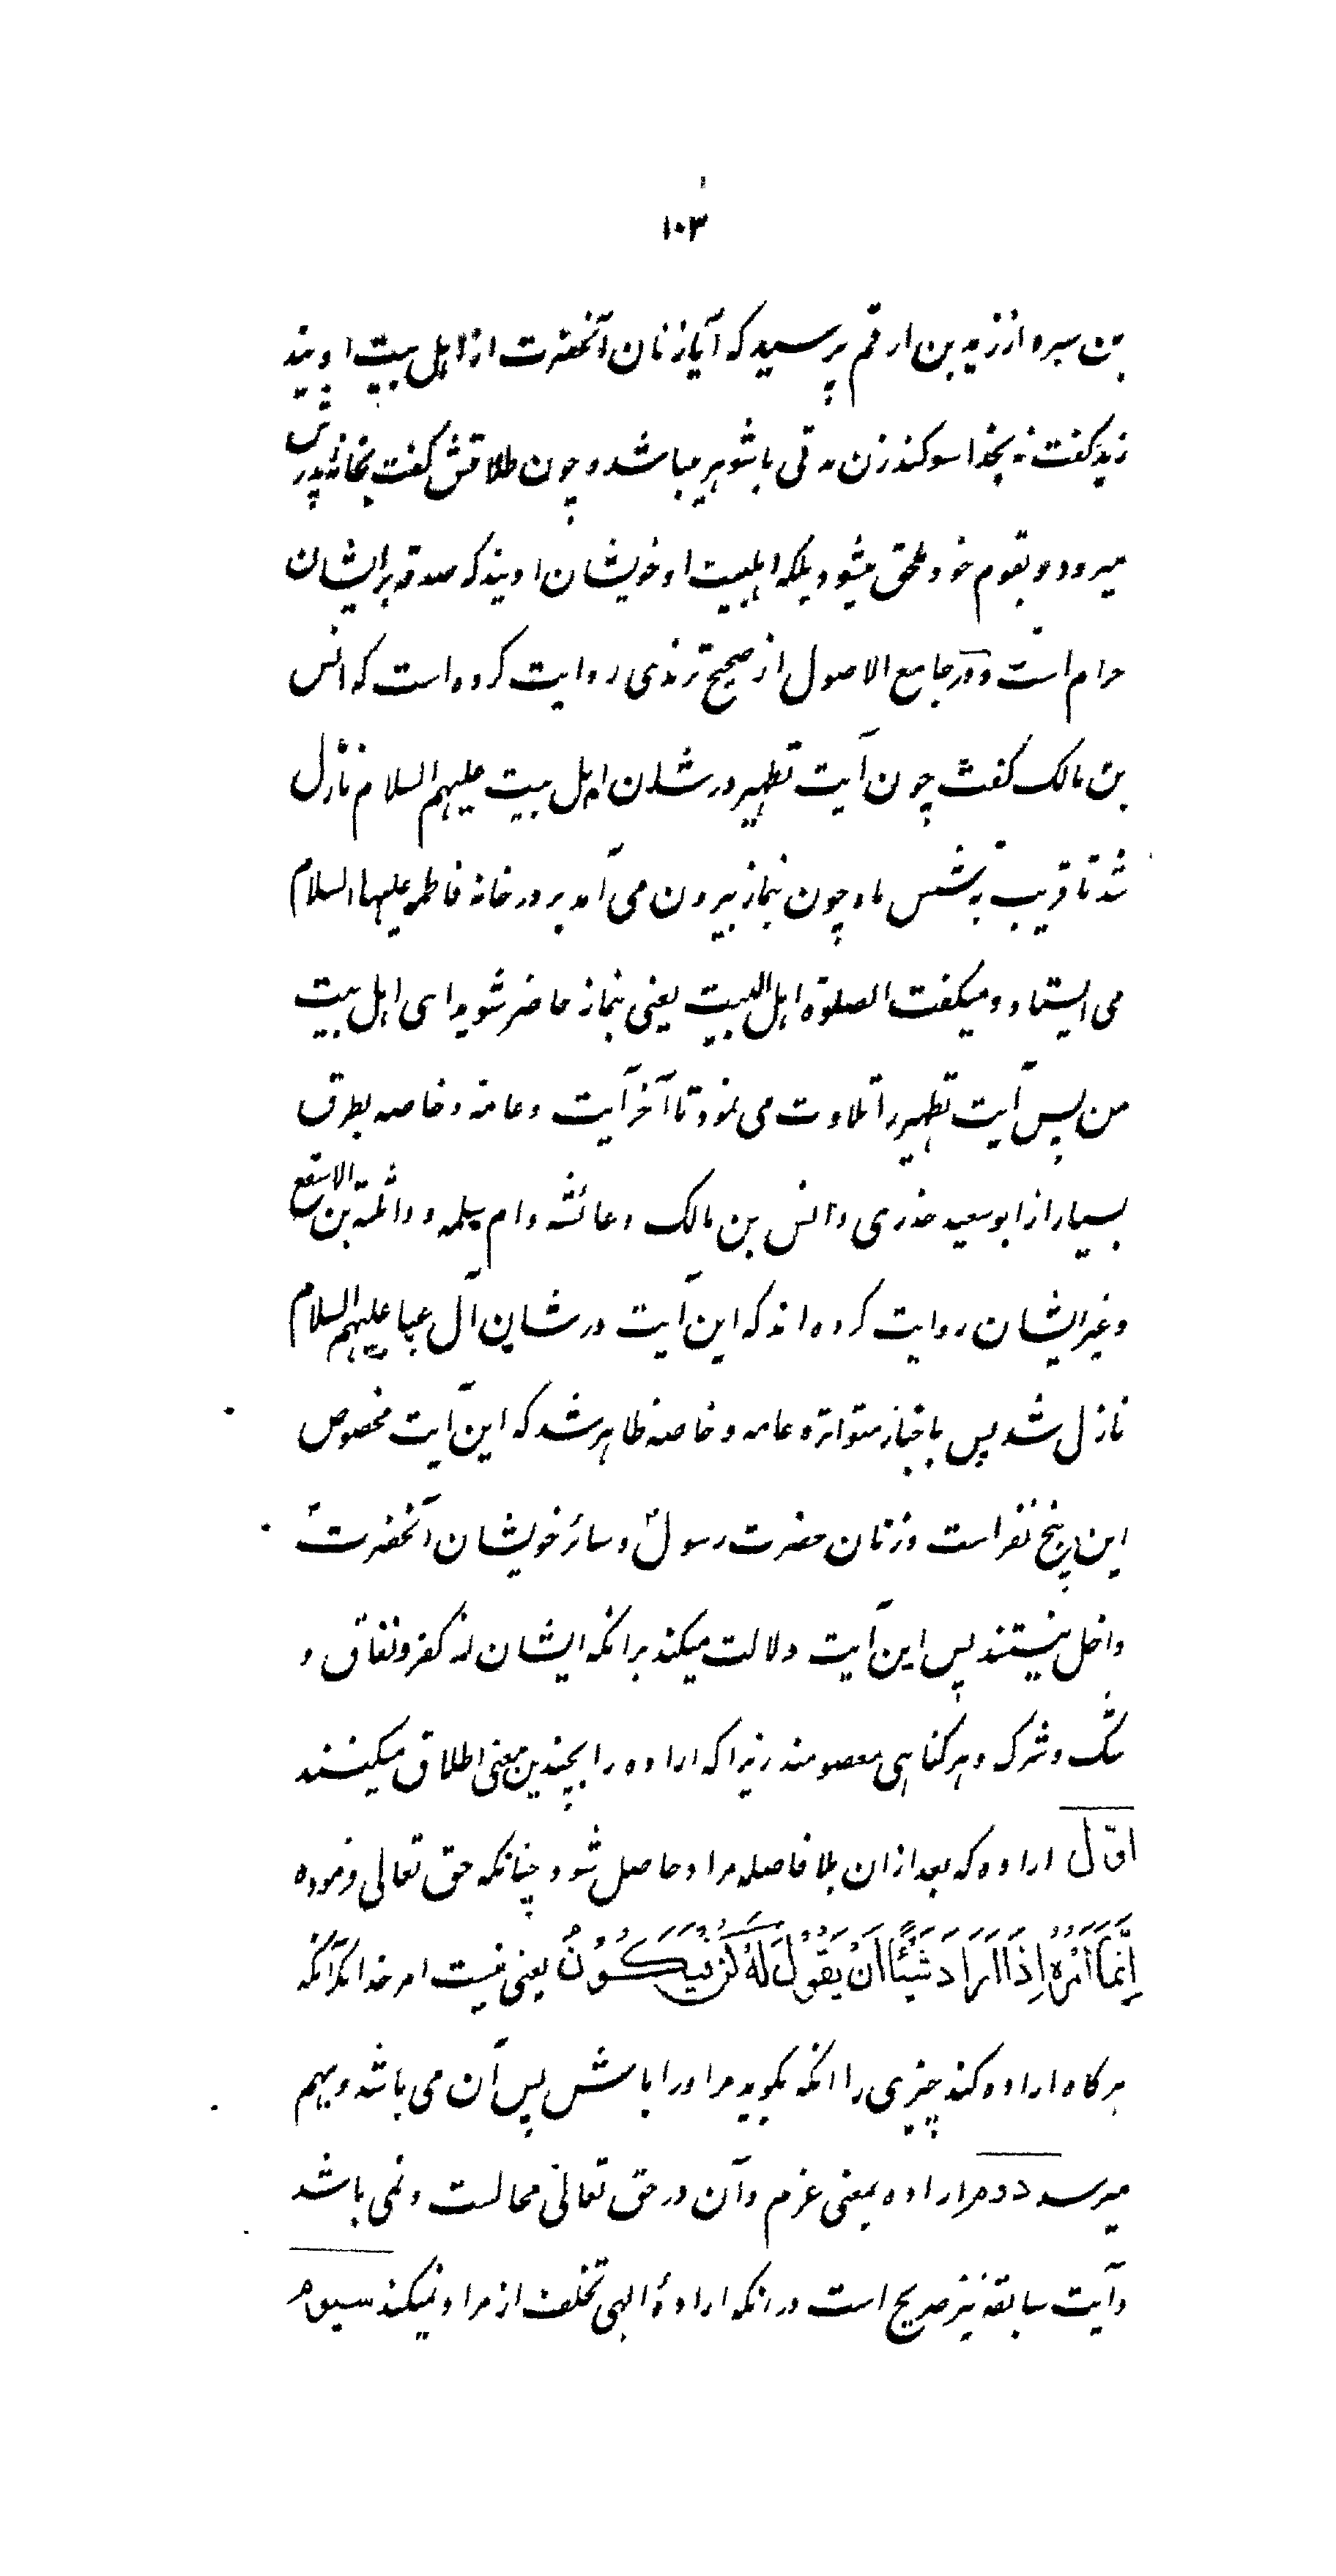 ۱۰۳
بن سبره از زید بن ارقم پرسید که آیا زنان آنحضرت از اهل بیت اویند
زید گفت نه بخدا سوکند زن مدتی با شوهر میباشد و چون طلاقش گفت بخانه پدرش
میرود و بقوم خود ملحق میشود بلکه اهلبیت او خویشان اویند که صدقه بر ایشان
حرام است و در جامع الاصول از صحیح ترمذی روایت کرده است که انس
بن مالک گفت چون آیت تطهیر در شان اهل بیت علیهم السلام نازل
شد تا قریب به شش ماه چون بنماز بیرون می آمد بر در خانه فاطمه علیها السلام
می ایستاد و میکفت الصلوة اهل البیت یعنی بنماز حاضر شوید ای اهل بیت
من پس آیت تطهیر را تلاوت می نمود تا آخر آیت و عامه و خاصه بطرق
بسیار از ابو سعید خدری و انس بن مالک و عائشه و ام سلمه و واثلة بن الاسقع
و غیر ایشان روایت کرده اند که این آیت در شان آل عبا علیهم السلام
نازل شد پس باخبار متواتره عامه و خاصه ظاهر شد که این آیت مخصوص
این پنج نفر است و زنان حضرت رسول و سائر خویشان آنحضرت
داخل نیستند پس این آیت دلالت میکند برانکه ایشان از کفر و نفاق و
شک و شرک و هر کناهی معصومند زیرا که اراده را بچندین معنی اطلاق میکنند
اول اراده که بعد ازان بلا فاصله مراد حاصل شود چنانکه حق تعالی فرموده
اِنَّمَا اَمْرُهٗ اِذَا اَرَادَ شَيْئًا اَنْ يَقُوْلَ لَهٗ كُنْ فَيَكُوْنُ یعنی نیست امر خدا مگر آنکه
هرکاه اراده کند چیزی را انکه بکوید مر او را باش پس آن می باشد و بهم
میرسد دوم اراده بمعنی عزم و آن در حق تعالی محالست و نمی باشد
و آیت سابقه نیز صریح است درانکه ارادهٔ الهی تخلف از مراد نمیکند سیوم